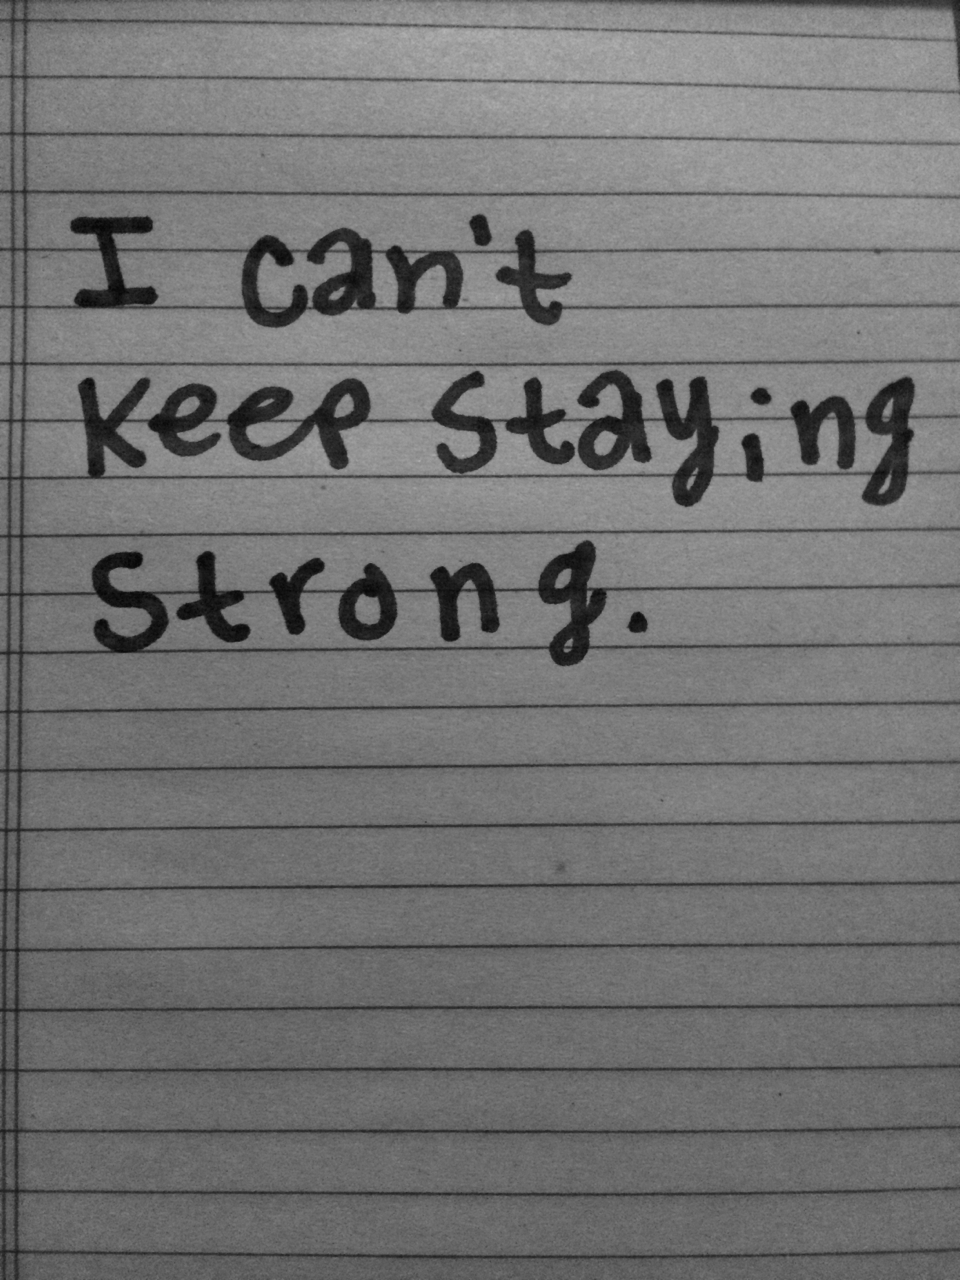 I can't
Keep Staying
Strong.